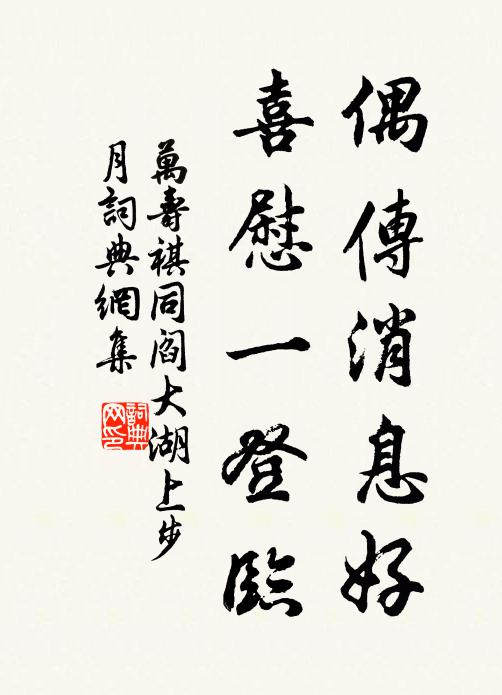 偶傳消息好
喜慰一登臨
萬壽祺同閻大湖上步
月詞典網集
詞典
网印